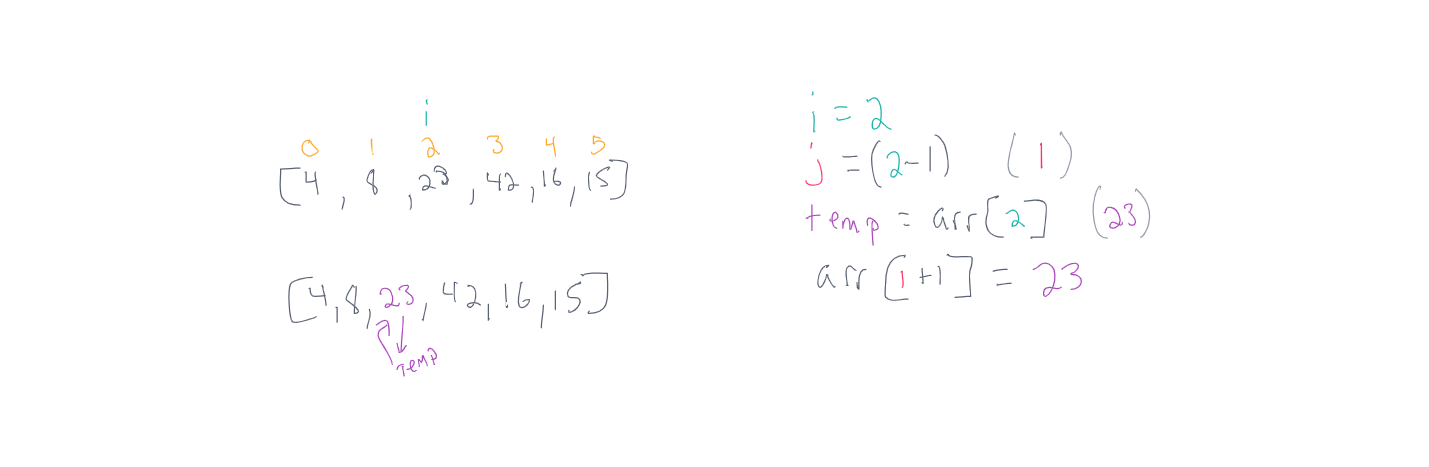 i
0 1 2 3 4 5
[4, 8, 23, 42, 16, 15]
[4, 8, 23, 42, 16, 15]
TEMP
i = 2
j = (2-1) (1)
temp = arr[2] (23)
arr[1+1] = 23